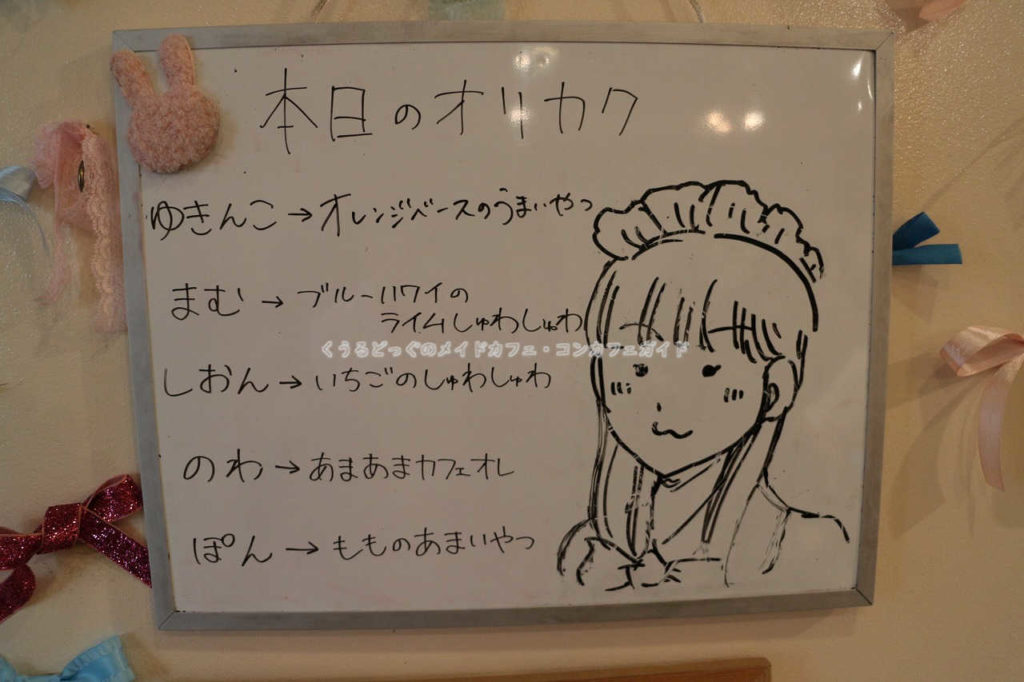 本日のオリカク
ゆきんこ→オレンジベースのうまいやつ
まむ→ブルーハワイの
ライムしゅわしゅわ
くうるどっぐのメイドカフェ・コンカフェガイド
しおん→いちごのしゅわしゅわ
のわ→あまあまカフェオレ
ぽん→もものあまいやつ